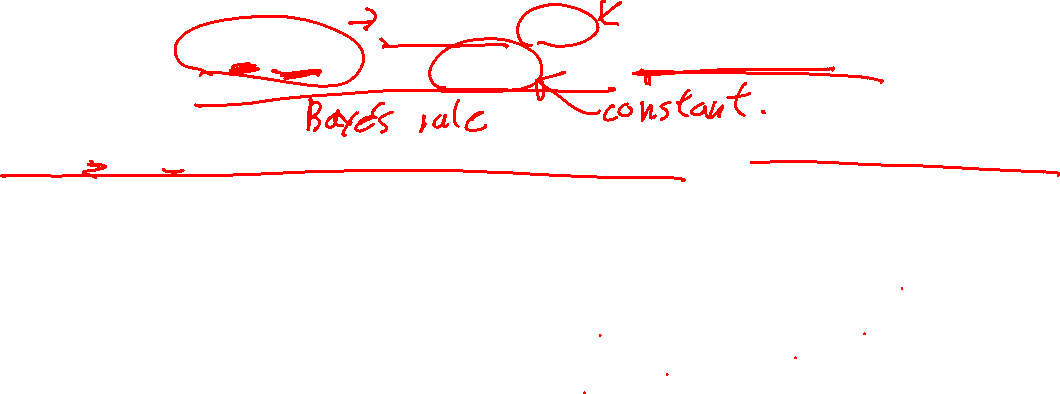 Bayes rule
constant.